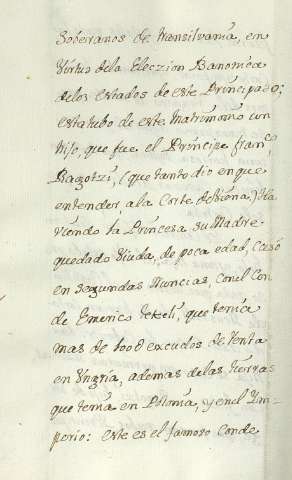 Soberanos de transilvania, en
Virtud dela Eleczion Canonica
delos estados de este Principado;
esta tubo de este Matrimonio un
hijo, que fue el Principe franco,
Ragotzi, (que tanto dio en que
entender ala Corte de Viena) Ha
viendo la Princesa su Madre
quedado Viuda, de poca edad, casó
en segundas Nuncias, con el Con
de Emerico Tekeli, que tenia
mas de 100@ escudos de renta
en Ungria, ademas delas tierras
que tenia en Polonia, y en el Ym-
perio: este es el famoso Conde